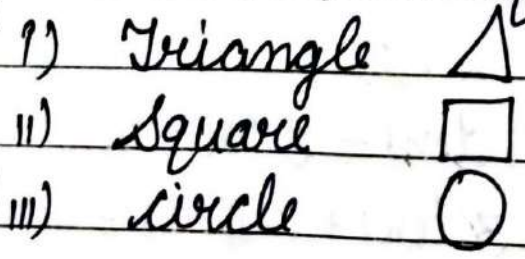 i) Triangle
ii) Square
iii) circle